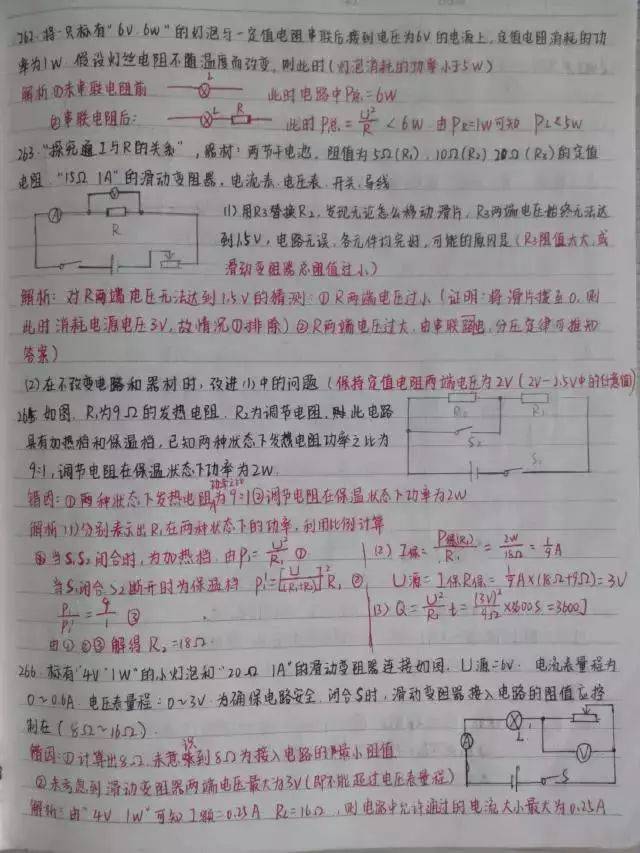 262. 将一只标有"6V 6W"的灯泡与一定值电阻串联后接到电压为6V的电源上，定值电阻消耗的功
率为1W. 假设灯丝电阻不随温度而改变. 则此时(灯泡消耗的功率小于5W)
解析 ①未串联电阻前 L 此时电路中P总=6W
②串联电阻后: L R 此时P总=U²/R<6W 由PR=1W可知 PL<5W
263. "探究I与R的关系", 器材: 两节干电池. 阻值为5Ω(R₁)、10Ω(R₂) 20Ω(R₃)的定值
电阻. "15Ω 1A"的滑动变阻器, 电流表. 电压表. 开关. 导线
V
A R
(1) 用R₃替换R₂, 发现无论怎么移动滑片, R₃两端电压始终无法达
到1.5V, 电路无误, 各元件均完好, 可能的原因是(R₃阻值太大, 或
滑动变阻器总阻值过小)
解析: 对R两端电压无法达到1.5V的猜测: ①R两端电压过小(证明: 将滑片拨至0, 则
此时消耗电源电压3V, 故情况①排除) ②R两端电压过大. 由串联电路, 分压定律可推知
答案)
(2) 在不改变电路和器材时, 改进(1)中的问题 (保持定值电阻两端电压为2V (2V-2.5V中的任意值)
如图. R₁为9Ω的发热电阻. R₂为调节电阻. 此电路
具有加热档和保温档, 已知两种状态下发热电阻功率之比为
9:1, 调节电阻在保温状态下功率为2W.
R₂ R₁
S₂
S₁
错因: ①两种状态下发热电阻功率之比为9:1 ②调节电阻在保温状态下功率为2W
解析 (1) 分别表示出R₁在两种状态下的功率, 利用比例计算
当S₁S₂闭合时, 为加热档. 由P₁=U²/R₁ ①
当S₁闭合S₂断开时为保温档 P₁'=[U/(R₁+R₂)]²R₁ ②
P₁/P₁'=9/1 ③
由①②③解得R₂=18Ω
(2) I保=√P保(R₂)/R₂=√2W/18Ω=1/3A
U源=I保R保=1/3A×(18Ω+9Ω)=9V
(3) Q=U²/R₁t=
×3600S=
266. 标有"4V 1W"的小灯泡和"20Ω 1A"的滑动变阻器连接如图. U源=6V. 电流表量程为
0~0.6A. 电压表量程: 0~3V. 为确保电路安全. 闭合S时, 滑动变阻器接入电路的阻值应控
制在(8Ω~16Ω).
A L V S
错因: ①计算出8Ω. 未意识到8Ω为接入电路的最小阻值
②未考虑到滑动变阻器两端电压最大为3V(即不能超过电压表量程)
解析: 由"4V 1W"可知I额=0.25A RL=16Ω, 则电路中允许通过的电流大小最大为0.25A